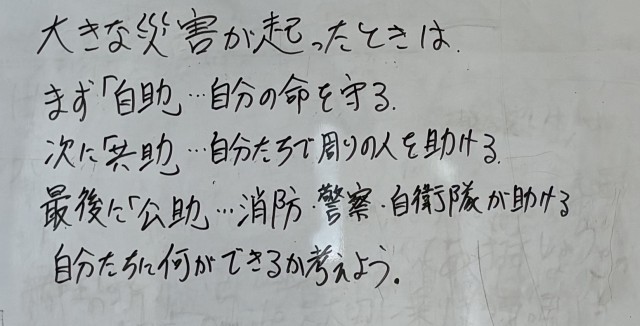 大きな災害が起ったときは.
まず「自助」…自分の命を守る.
次に「共助」…自分たちで周りの人を助ける.
最後に「公助」…消防・警察・自衛隊が助ける
自分たちに何ができるか考えよう。